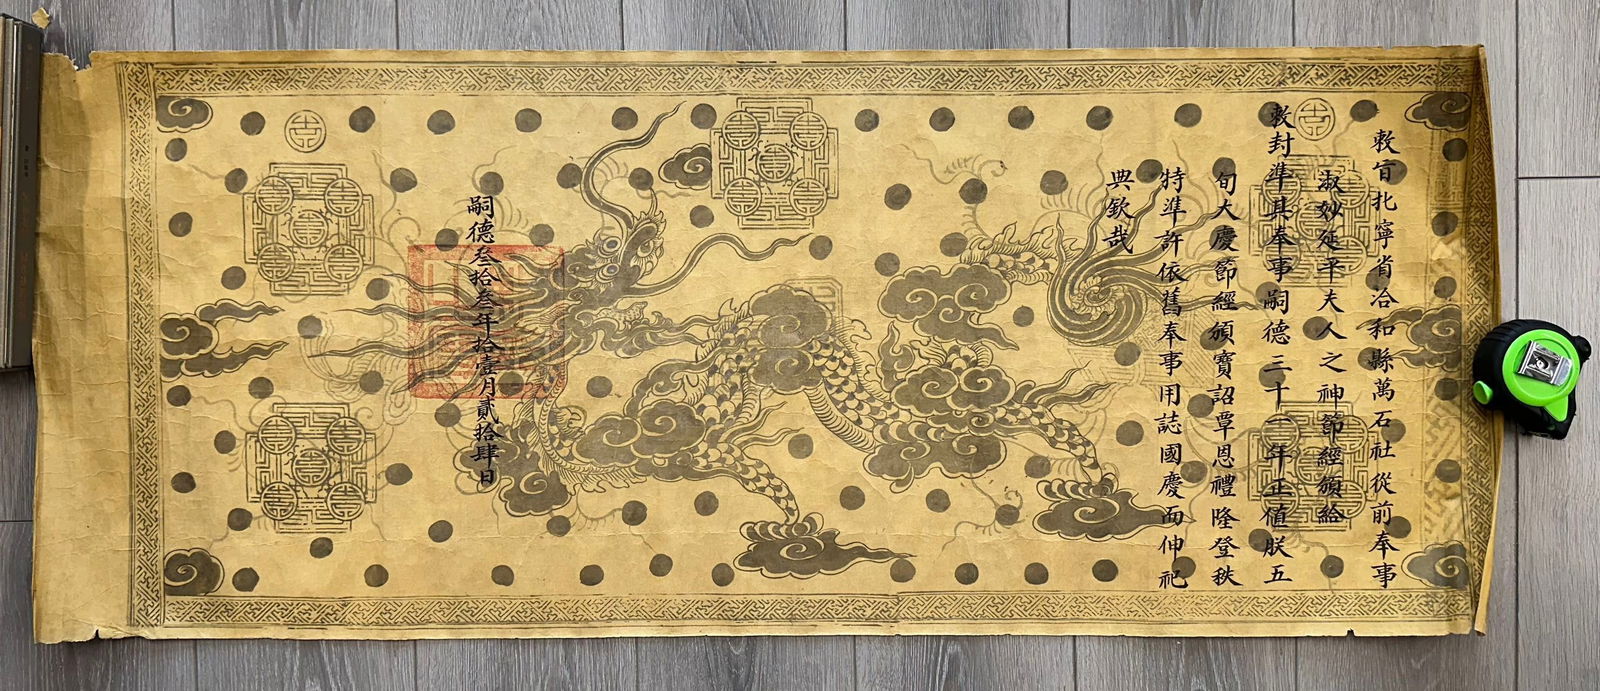 敕旨北寧省洽和縣萬石社從前奉事
淑妙延平夫人之神節經頒給
敕封準其奉事嗣德三十一年正值朕五
旬大慶節經頒寶詔覃恩禮隆登秩
特準許依舊奉事用誌國慶而伸祀
典欽哉
嗣德叁拾叁年拾壹月貳拾肆日